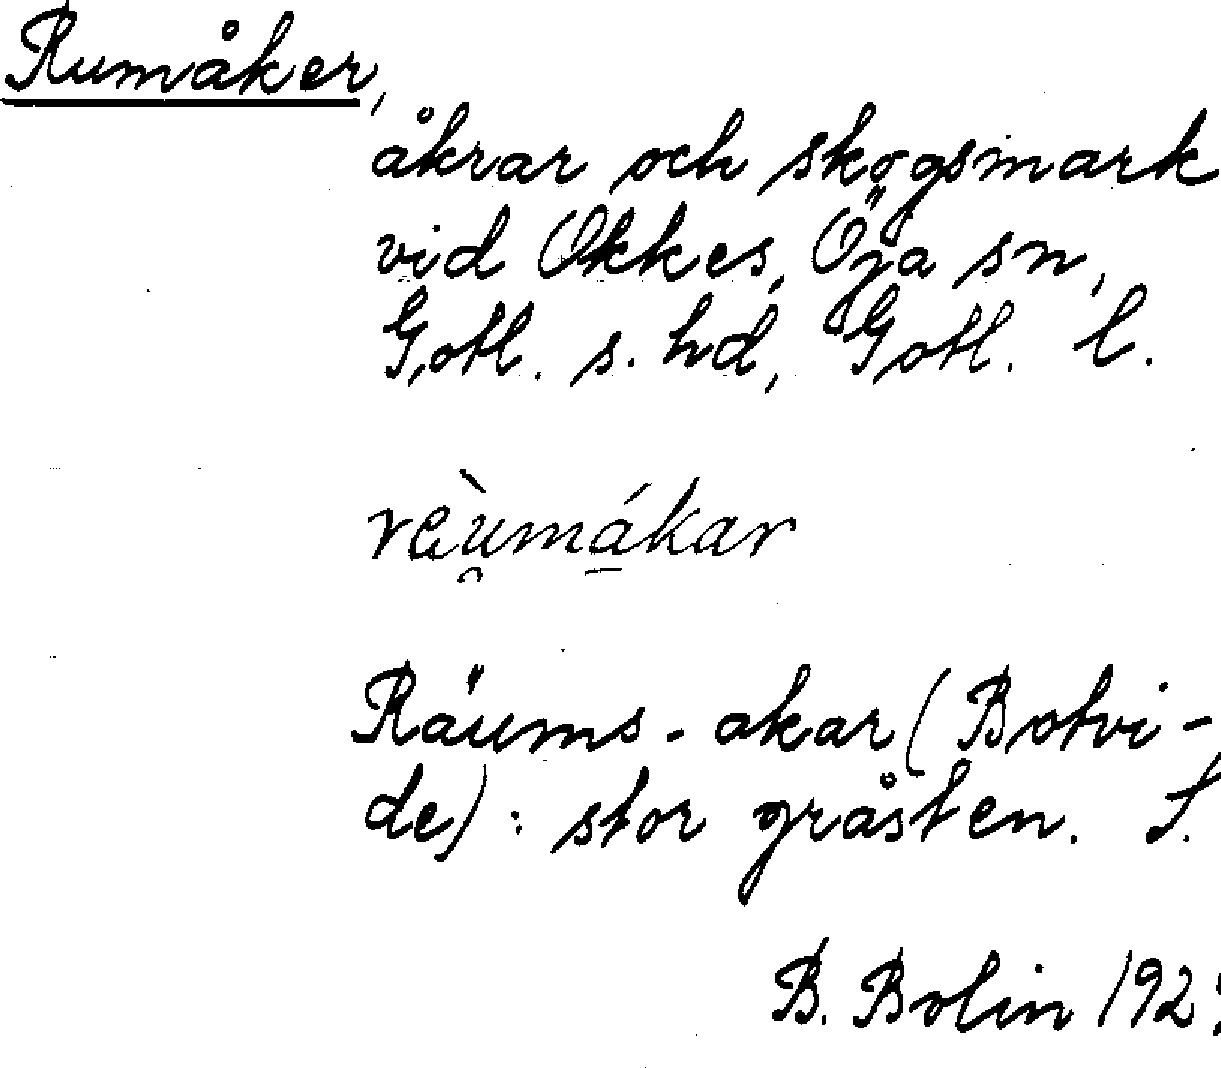 Rumåker,
åkrar och skogsmark
vid Okkes, Öja sn,
Gotl. s. hd, Gotl. l.
ræ̀u̯má̱kar
Räums-akar (Botvi-
de): stor gråsten. S.
B. Bolin 192